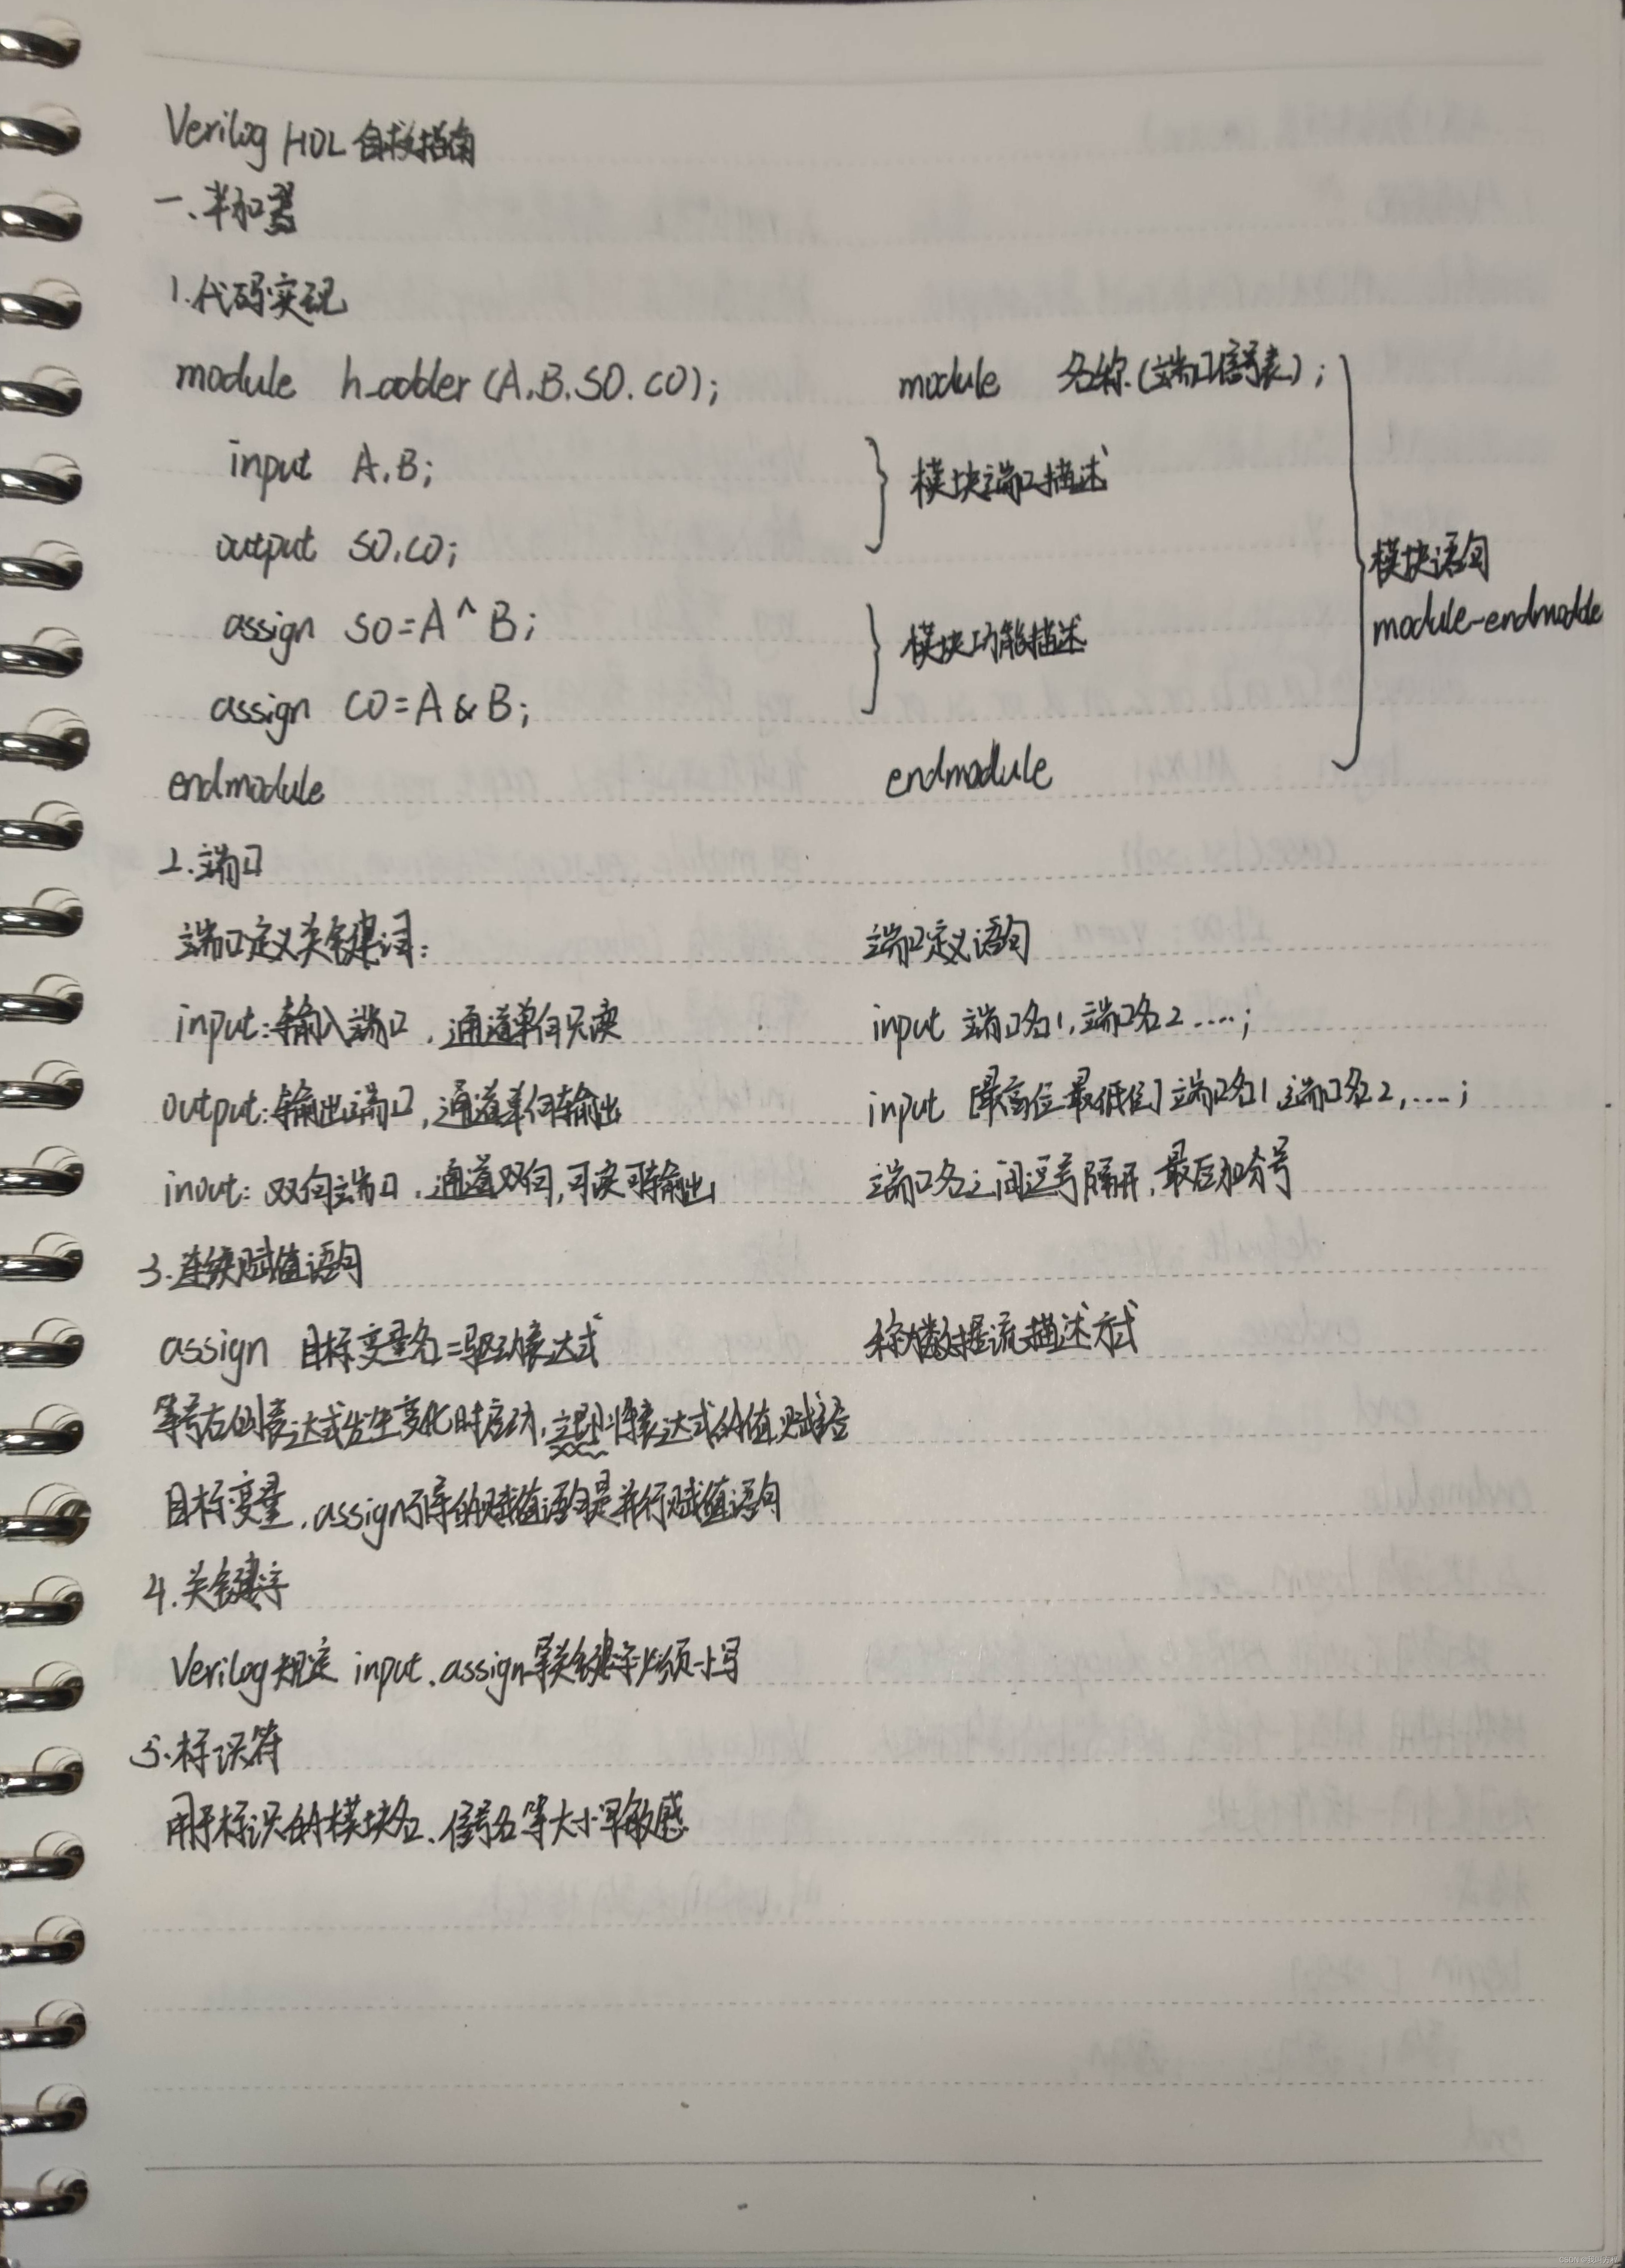 Verilog HDL 自救指南
一、半加器
1.代码实现
module h_adder(A,B,SO,CO);
module 名称(端口信号表);
input A,B;
模块端口描述
output SO,CO;
模块语句
module-endmodule
assign SO=A^B;
模块功能描述
assign CO=A&B;
endmodule
endmodule
2.端口
端口定义关键词:
端口定义语句
input:输入端口,通道单向只读
input 端口名1,端口名2....;
output:输出端口,通道单向输出
input [最高位:最低位]端口名1,端口名2,....;
inout:双向端口,通道双向,可读可输出
端口名之间逗号隔开,最后加分号
3.连续赋值语句
assign 目标变量名=驱动表达式
称为数据流描述方式
等号右侧表达式发生变化时启动,立即将表达式的值赋给
目标变量,assign引导的赋值语句是并行赋值语句
4.关键字
Verilog规定 input、assign等关键字必须小写
5.标识符
用于标识的模块名、信号名等大小写敏感
CSDN